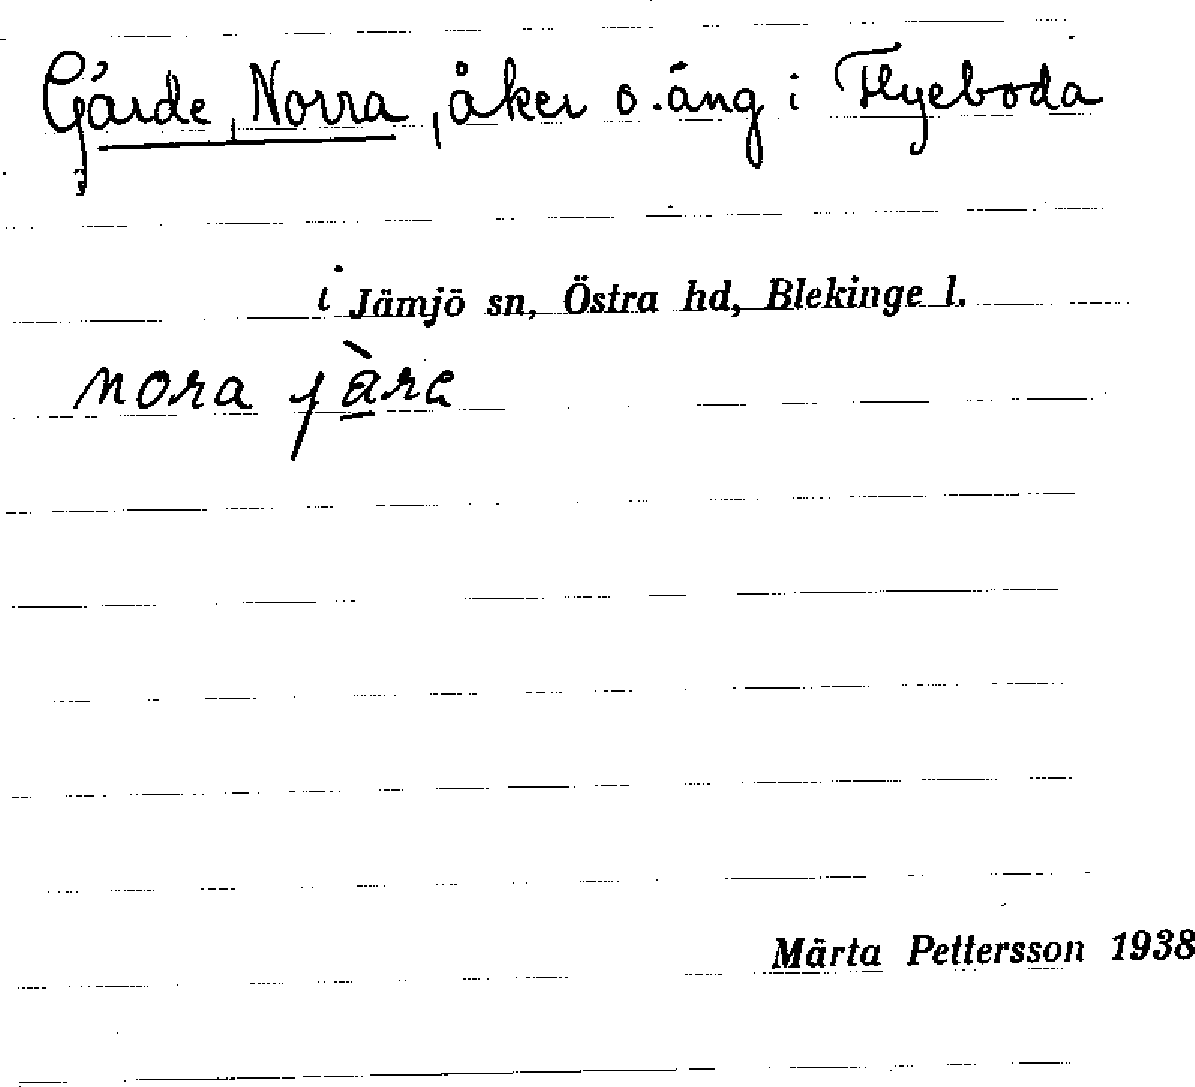 Gärde, Norra, åker o. äng i Flyeboda
i Jämjö sn, Östra hd, Blekinge l.
nora jàra
Märta Pettersson 1938